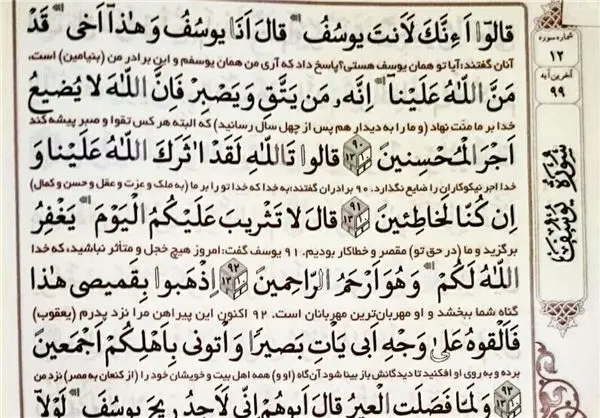 قالُوا أَءِنَّكَ لَأَنتَ یُوسُفُ ۖ قالَ أَنَا یُوسُفُ وَ هٰذا أَخی ۖ قَدْ
آنان گفتند: آیا تو همان یوسف هستی؟ پاسخ داد که آری من همان یوسفم و این برادر من (بنیامین) است،
مَنَّ اللّٰهُ عَلَیْنا ۖ إِنَّهُ مَن یَتَّقِ وَ یَصْبِرْ فَإِنَّ اللّٰهَ لا یُضیعُ
خدا بر ما منّت نهاد (و ما را به دیدار هم پس از چهل سال رسانید) که البته هر کس تقوا و صبر پیشه کند
أَجْرَ الْمُحْسِنینَ ۹۰ قالُوا تَاللّٰهِ لَقَدْ اٰثَرَكَ اللّٰهُ عَلَیْنا وَ
خدا اجر نیکوکاران را ضایع نگذارد. ۹۰ برادران گفتند: به خدا که خدا تو را بر ما (به ملک و عزت و عقل و حسن و کمال)
إِن كُنّا لَخاطِئینَ ۹۱ قالَ لا تَثْریبَ عَلَیْكُمُ الْیَوْمَ ۖ یَغْفِرُ
برگزید و ما (در حق تو) مقصر و خطاکار بودیم. ۹۱ یوسف گفت: امروز هیچ خجل و متأثر نباشید، که خدا
اللّٰهُ لَكُمْ ۖ وَ هُوَ أَرْحَمُ الرّاحِمینَ ۹۲ إِذْهَبُوا بِقَمیصی هٰذا
گناه شما ببخشد و او مهربان‌ترین مهربانان است. ۹۲ اکنون این پیراهن مرا نزد پدرم (یعقوب)
فَأَلْقُوهُ عَلیٰ وَجْهِ أَبی یَأْتِ بَصیرًا وَ أْتُونی بِأَهْلِكُمْ أَجْمَعینَ
برده و به روی او افکنید تا دیدگانش باز بینا شود آن‌گاه (او و) همه اهل بیت و خویشان خود را (از کنعان به مصر) نزد من
۹۳ وَ لَمّا فَصَلَتِ الْعیرُ قالَ أَبُوهُمْ إِنّی لَأَجِدُ ریحَ یُوسُفَ ۖ لَوْلا
شماره سوره
۱۲
آخرین آیه
۹۹
سُورَةُ یُوسُفَ